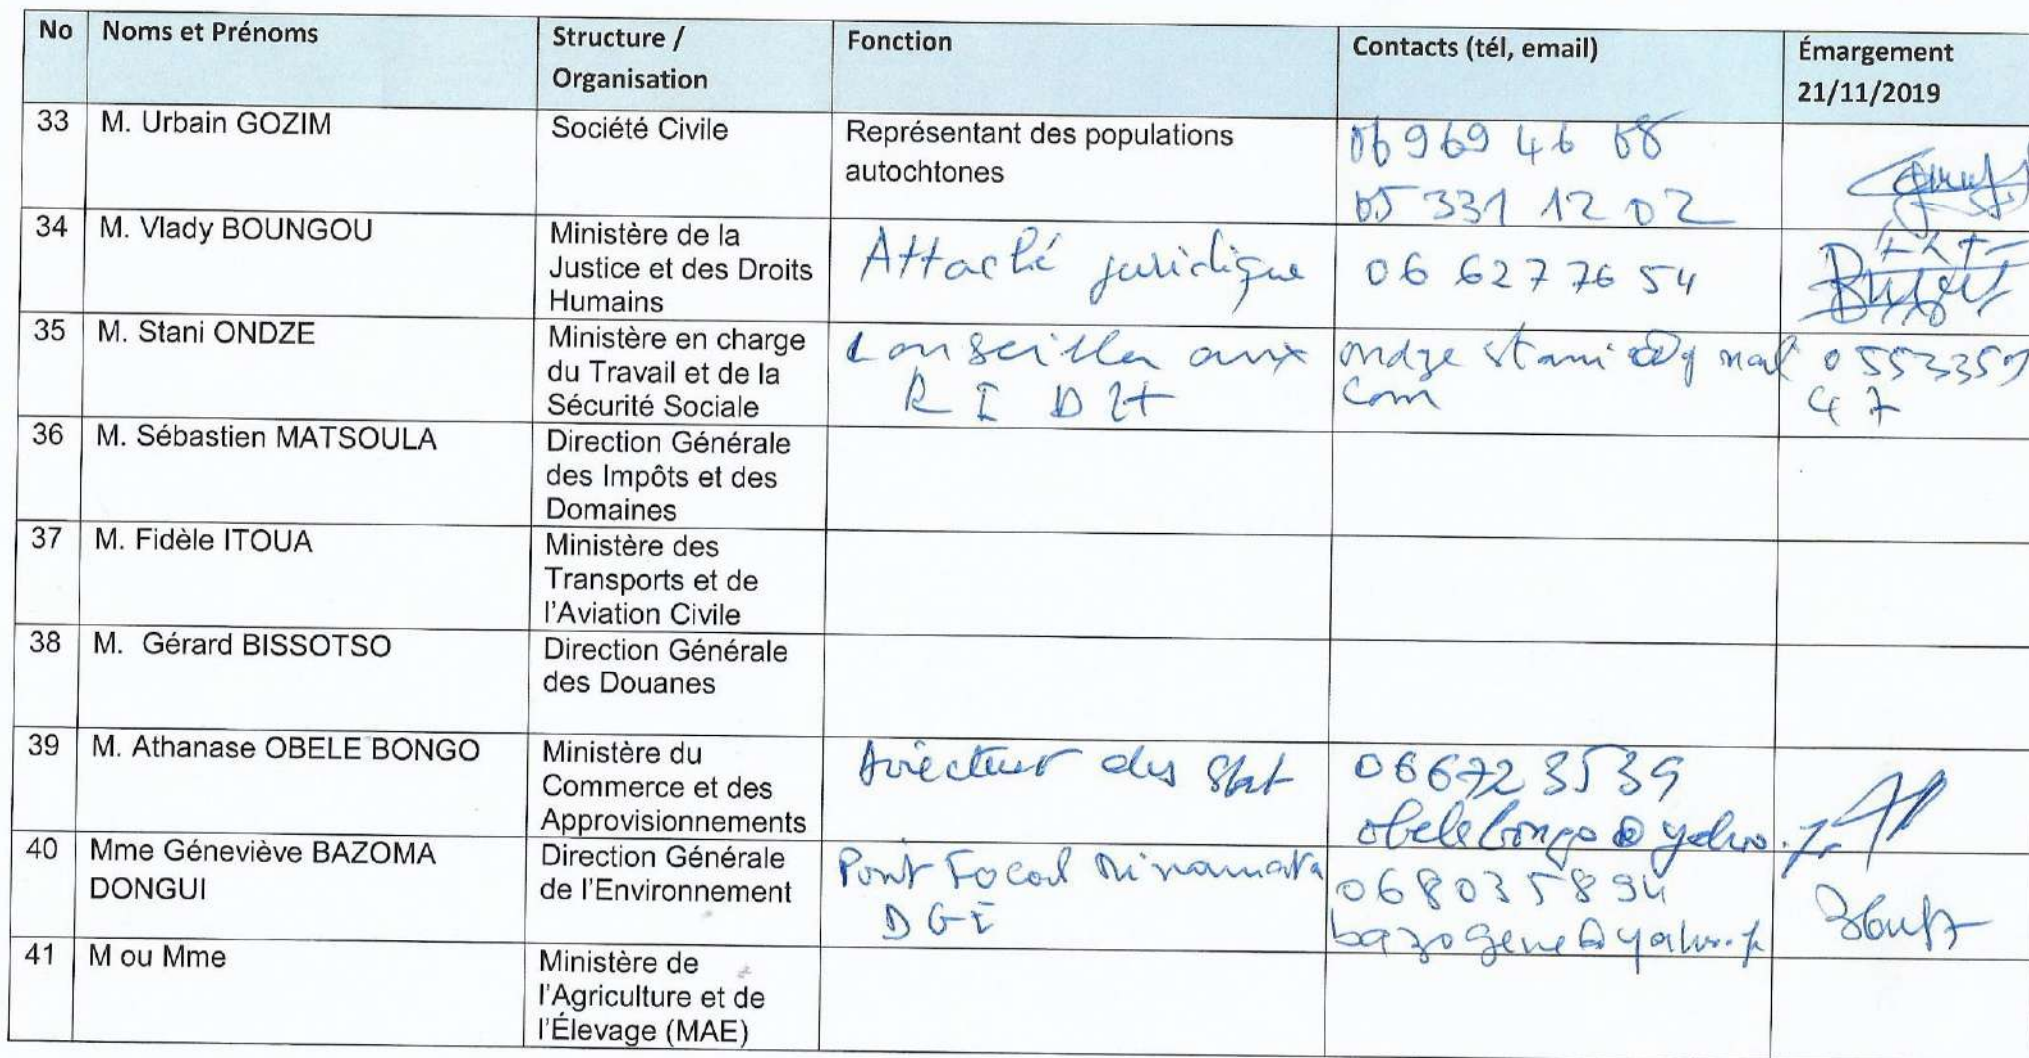 No Noms et Prénoms Structure / Organisation Fonction Contacts (tél, email) Émargement 21/11/2019
33 M. Urbain GOZIM Société Civile Représentant des populations
autochtones
06 969 46 08
05 331 12 02
34 M. Vlady BOUNGOU Ministère de la
Justice et des Droits
Humains
Attaché juridique 06 627 76 54
35 M. Stani ONDZE Ministère en charge
du Travail et de la
Sécurité Sociale
Conseiller aux
R I D
ondze stani @g mail
com
0553359
47
36 M. Sébastien MATSOULA Direction Générale
des Impôts et des
Domaines
37 M. Fidèle ITOUA Ministère des
Transports et de
l'Aviation Civile
38 M. Gérard BISSOTSO Direction Générale
des Douanes
39 M. Athanase OBELE BONGO Ministère du
Commerce et des
Approvisionnements
Directeur des Stat 066723539
obelebongo@yahoo.fr
40 Mme Géneviève BAZOMA
DONGUI
Direction Générale
de l'Environnement
Point Focal Minamata
DGE
068035894
bazogene@yahoo.fr
41 M ou Mme Ministère de
l'Agriculture et de
l'Élevage (MAE)